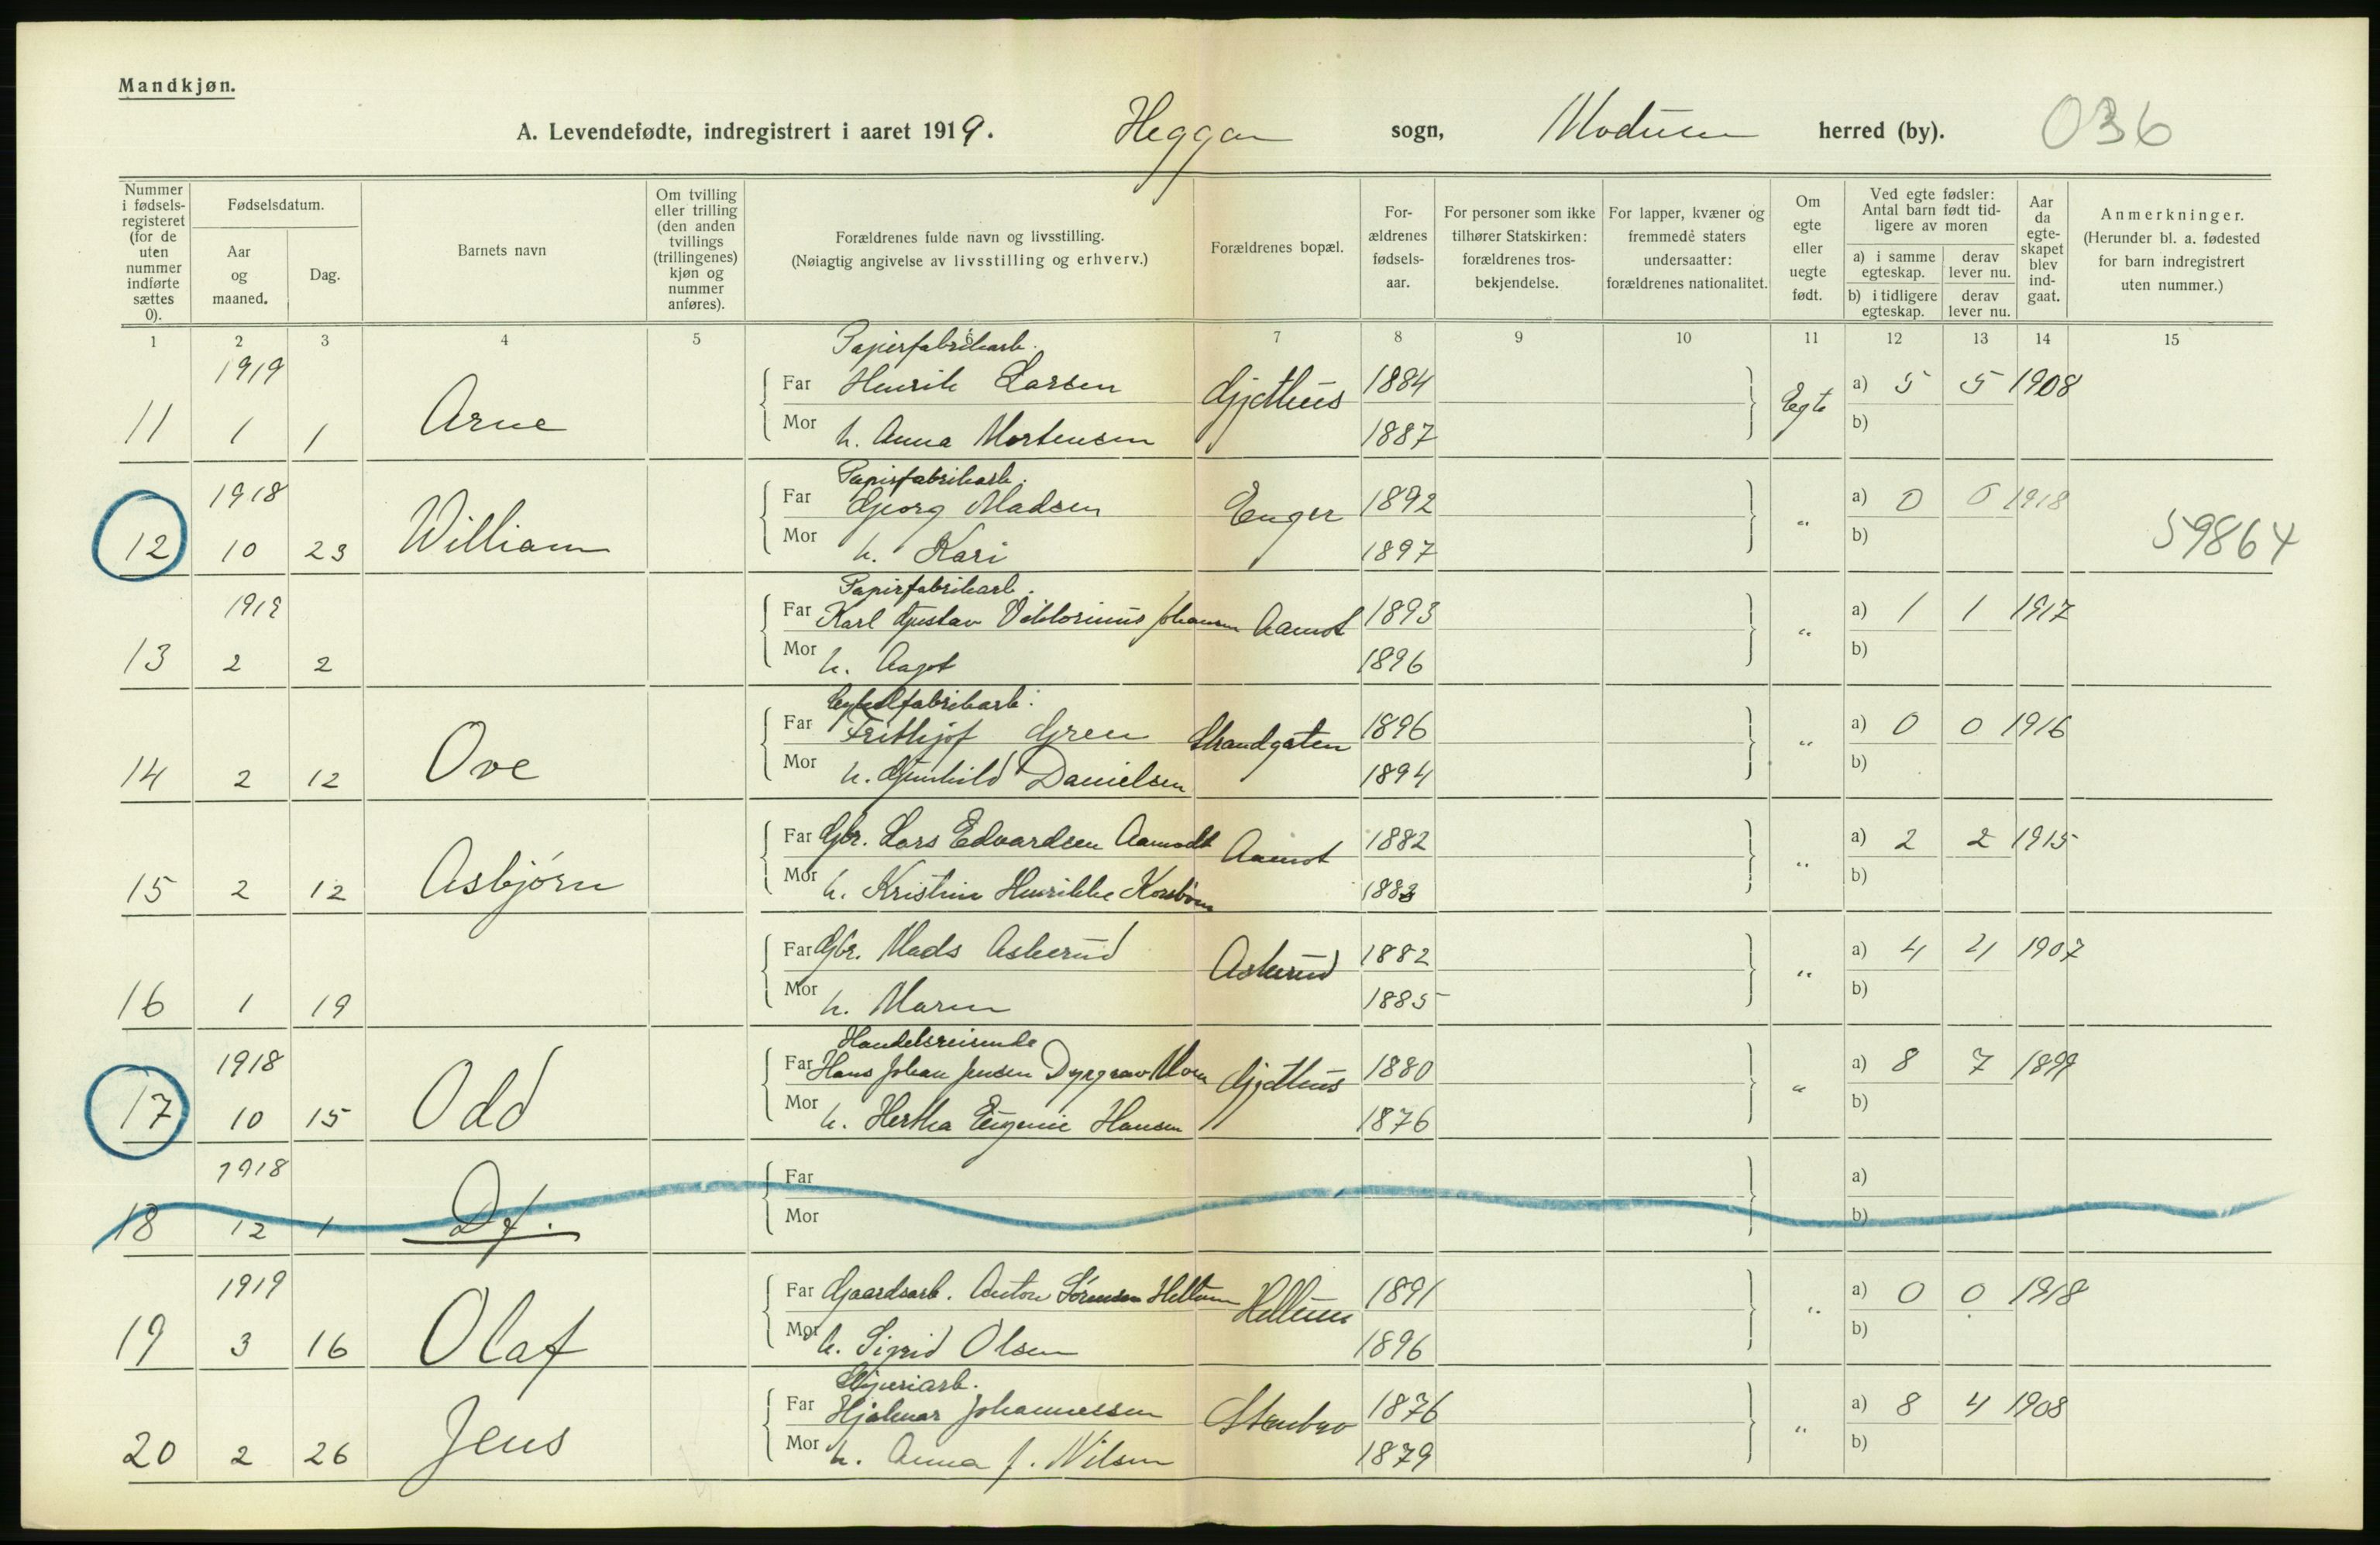 Mandkjøn.
A. Levendefødte, indregistrert i aaret 1919. Heggen sogn, Modum herred (by). 036
Nummer i fødselsregisteret (for de uten nummer indførte sættes 0).
Fødselsdatum.
Aar og maaned.
Dag.
Barnets navn
Om tvilling eller trilling (den anden tvillings (trillingenes) kjøn og nummer anføres).
Forældrenes fulde navn og livsstilling.
(Nøiagtig angivelse av livsstilling og erhverv.)
Forældrenes bopæl.
For-ældrenes fødsels-aar.
For personer som ikke tilhører Statskirken: forældrenes tros-bekjendelse.
For lapper, kvæner og fremmede staters undersaatter: forældrenes nationalitet.
Om egte eller uegte født.
Ved egte fødsler: Antal barn født tid-ligere av moren
a) i samme egteskap.
derav lever nu.
b) i tidligere egteskap.
derav lever nu.
Aar da egte-skapet blev ind-gaat.
Anmerkninger.
(Herunder bl. a. fødested for barn indregistrert uten nummer.)
1 2 3 4 5 6 7 8 9 10 11 12 13 14 15
Papirfabrikarb.
1919 Far Henrik Larsen Gjethus 1884 Egte a) 5 5 1908
11 1 1 Arne Mor h. Anna Mortensen 1887 b)
Papirfabrikarb.
1918 Far Georg Madsen Enger 1892 " a) 0 0 1918
12 10 23 William Mor h. Kari 1897 b) 59864
Papirfabrikarb.
1919 Far Karl Gustav Viktorinus Johansen Aamot 1893 " a) 1 1 1917
13 2 2 Mor h. Aagot 1896 b)
fabrikarb.
Far Frithjof Gren Strandgaten 1896 " a) 0 0 1916
14 2 12 Ove Mor h. Gunhild Danielsen 1894 b)
Far Gbr. Lars Edvardsen Aamodt Aamot 1882 " a) 2 2 1915
15 2 12 Asbjørn Mor h. Kristine Henrikke 1883 b)
Far Gbr. Mads Askerud Askerud 1882 " a) 4 4 1907
16 1 19 Mor h. Maren 1885 b)
Handelsreisende
1918 Far Hans Johan Jensen Dyrgrav Moen Gjethus 1880 " a) 8 7 1899
17 10 15 Odd Mor h. Hertha Eugenie Hansen 1876 b)
1918 Far a)
18 12 1 Df. Mor b)
1919 Far Gaardsarb. Anton Sørensen Hellum Hellum 1891 " a) 0 0 1918
19 3 16 Olaf Mor h. Sigrid Olsen 1896 b)
Sliperiarb.
Far Hjalmar Johannessen Stenbro 1876 " a) 8 4 1908
20 2 26 Jens Mor h. Anna J. Nilsen 1879 b)